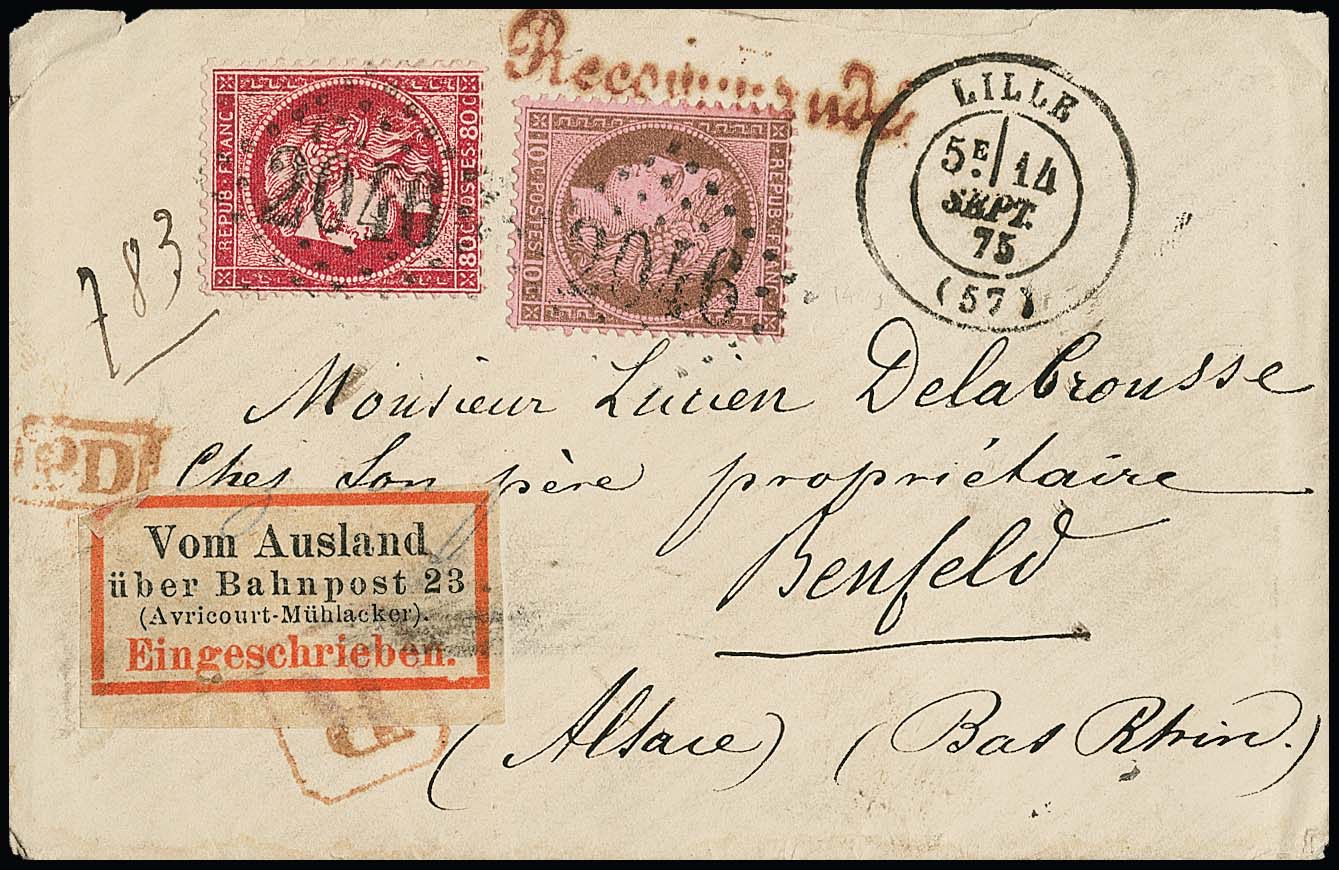 Recommandé
REPUB · FRANC · 80 C · POSTES · 80 C
2046
10 C · POSTES · 10 C · REPUB · FRANC ·
2046
LILLE
5E 14
SEPT.
75
(57)
783
Monsieur Lucien Delabrousse
PD
Chez Son père propriétaire
Benfeld
Vom Ausland
über Bahnpost 23
(Avricourt-Mühlacker).
Eingeschrieben.
R
(Alsace) (Bas Rhin.)